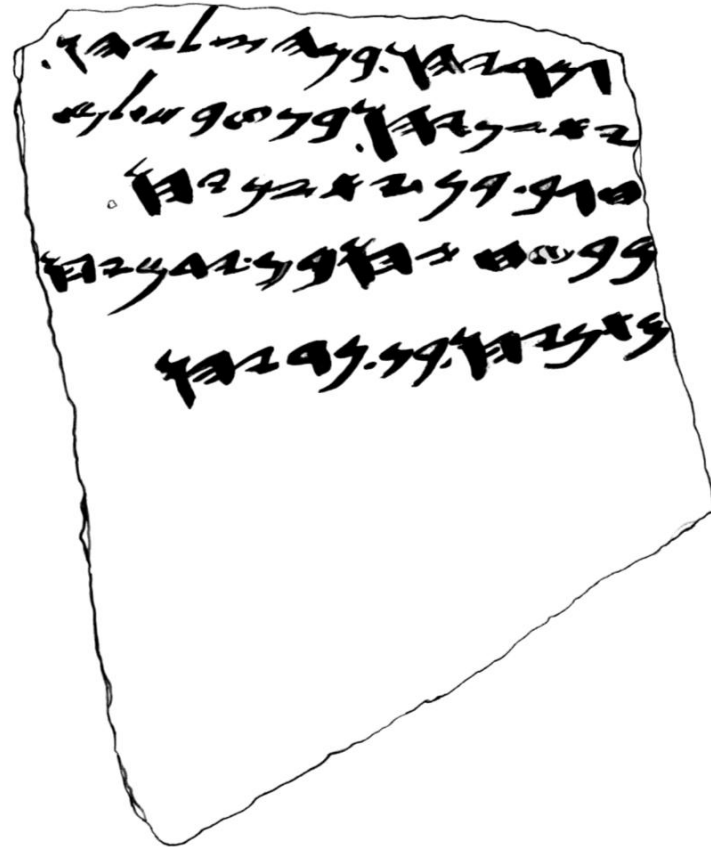 𐤂𐤌𐤓𐤉𐤄𐤅 . 𐤁𐤍 𐤄𐤑𐤋𐤉𐤄𐤅 .
𐤉𐤀𐤆𐤍𐤉𐤄𐤅 . 𐤁𐤍 𐤈𐤁𐤔𐤋𐤌
𐤇𐤂𐤁 . 𐤁𐤍 𐤉𐤀𐤆𐤍𐤉𐤄𐤅 .
𐤌𐤁𐤈𐤇𐤉𐤄𐤅 𐤁𐤍 . 𐤉𐤓𐤌𐤉𐤄𐤅
𐤌𐤕𐤍𐤉𐤄𐤅 . 𐤁𐤍 . 𐤍𐤓𐤉𐤄𐤅